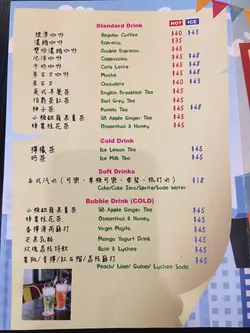 Standard Drink HOT ICE
標準咖啡 Regular Coffee $40 $43
濃縮咖啡 Espresso $35
雙份濃縮咖啡 Double Espresso $45
泡沫咖啡 Cappuccino $45 $48
牛奶咖啡 Cafe Latte $45 $48
Mocha $45 $48
Chocolate $40 $43
英式早餐茶 English Breakfast Tea $45
伯爵茶 Earl Grey Tea $45
柚子茶 Pomelo Tea $45 $48
SB Apple Ginger Tea $45
蜂蜜桂花茶 Osmanthus & Honey $45
Cold Drink
檸檬茶 Ice Lemon Tea $45
奶茶 Ice Milk Tea $45
Soft Drinks
各式汽水 $18
Coke/Coke Zero/Sprite/Soda Water
Bubble Drink (COLD)
SB Apple Ginger Tea $45
蜂蜜桂花茶 Osmanthus & Honey $45
Virgin Mojito $45
芒果乳酪 Mango Yogurt Drink $45
Rose & Lychee $45
$45
Peach/ Lime/ Guava/ Lychee Soda